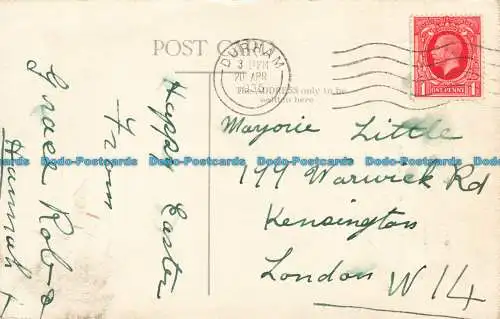 POST CARD
DURHAM
3 PM
20 APR
The ADDRESS only to be
written here
1 ONE PENNY 1
Happy Easter
from
Grace Rob
Hannah
Marjorie Little
199 Warwick Rd
Kensington
London W 14
Dodo-Postcards Dodo-Postcards Dodo-Postcards Dodo-Postcards Dodo-Postcards
Dodo-Postcards Dodo-Postcards Dodo-Postcards Dodo-Postcards